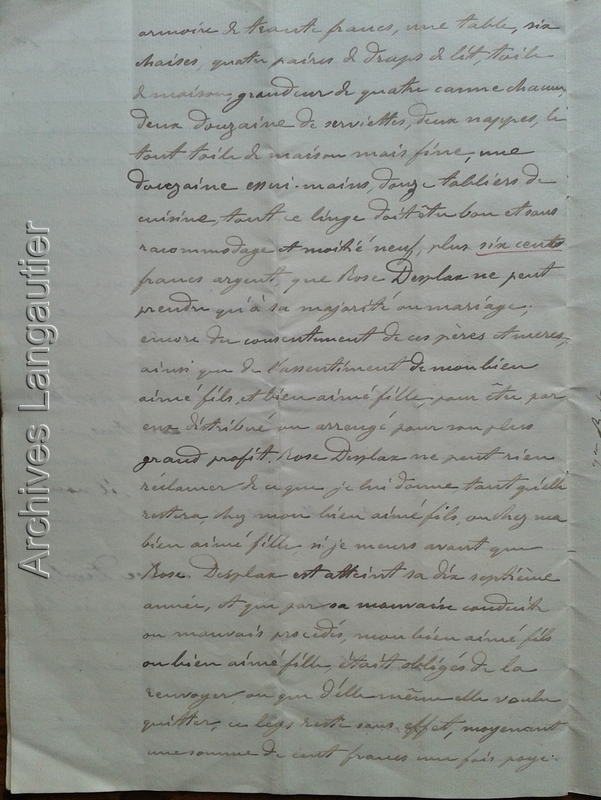 armoire de trante francs, une table, six
chaises, quatre paires de draps de lit, toile
de maison grandeur de quatre canne chacun,
deux douzaine de serviettes, deux nappes, le
tout toile de maison mais fine, une
douzaine essui-mains, douze tabliers de
cuisine, tout ce linge doit être bon et sans
racommodage et moitié neuf, plus six cents
francs argent, que Rose Desplax ne peut
prendre qu'à sa majorité ou mariage,
encore du consentement de ces pères et mères,
ainsi que de l'assentiment de mon bien
aimé fils, et bien aimé fille, pour être par
eux distribué ou arrengé pour son plus
grand profit. Rose Desplax ne peut rien
réclamer de ce que je lui donne tant qu'elle
restera, chez mon bien aimé fils, ou chez ma
bien aimé fille, si je meurs avant que
Rose Desplax est atteint sa dix septième
année, et que par sa mauvaise conduite
ou mauvais procédés, mon bien aimé fils
ou bien aimé fille était obligés de la
renvoyer, ou que d'elle même elle voulu
quitter, ce legs reste sans effet, moyenant
une somme de cent francs une fois paye.
Archives Langautier